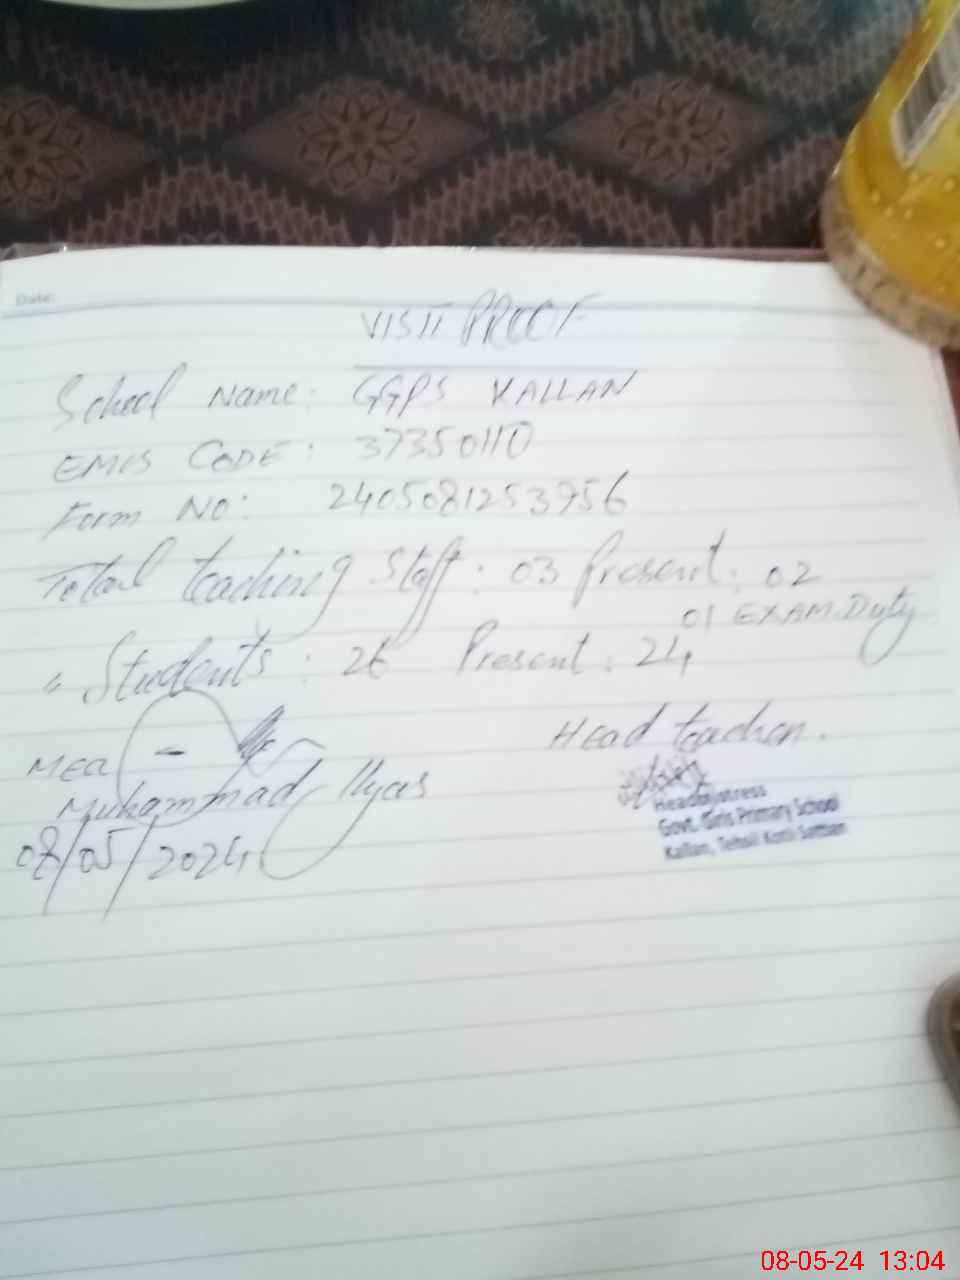 Date:
VISIT PROOF
School Name: GGPS KALLAN
EMIS CODE: 37350110
Form No: 2405081253956
Total teaching Staff: 03 Present: 02
01 EXAM Duty
" Students: 26 Present: 24
MEA
Muhammad Ilyas
08/05/2024
Head teacher.
Headmistress
Govt. Girls Primary School
Kallan, Tehsil Kotli Sattian
08-05-24 13:04